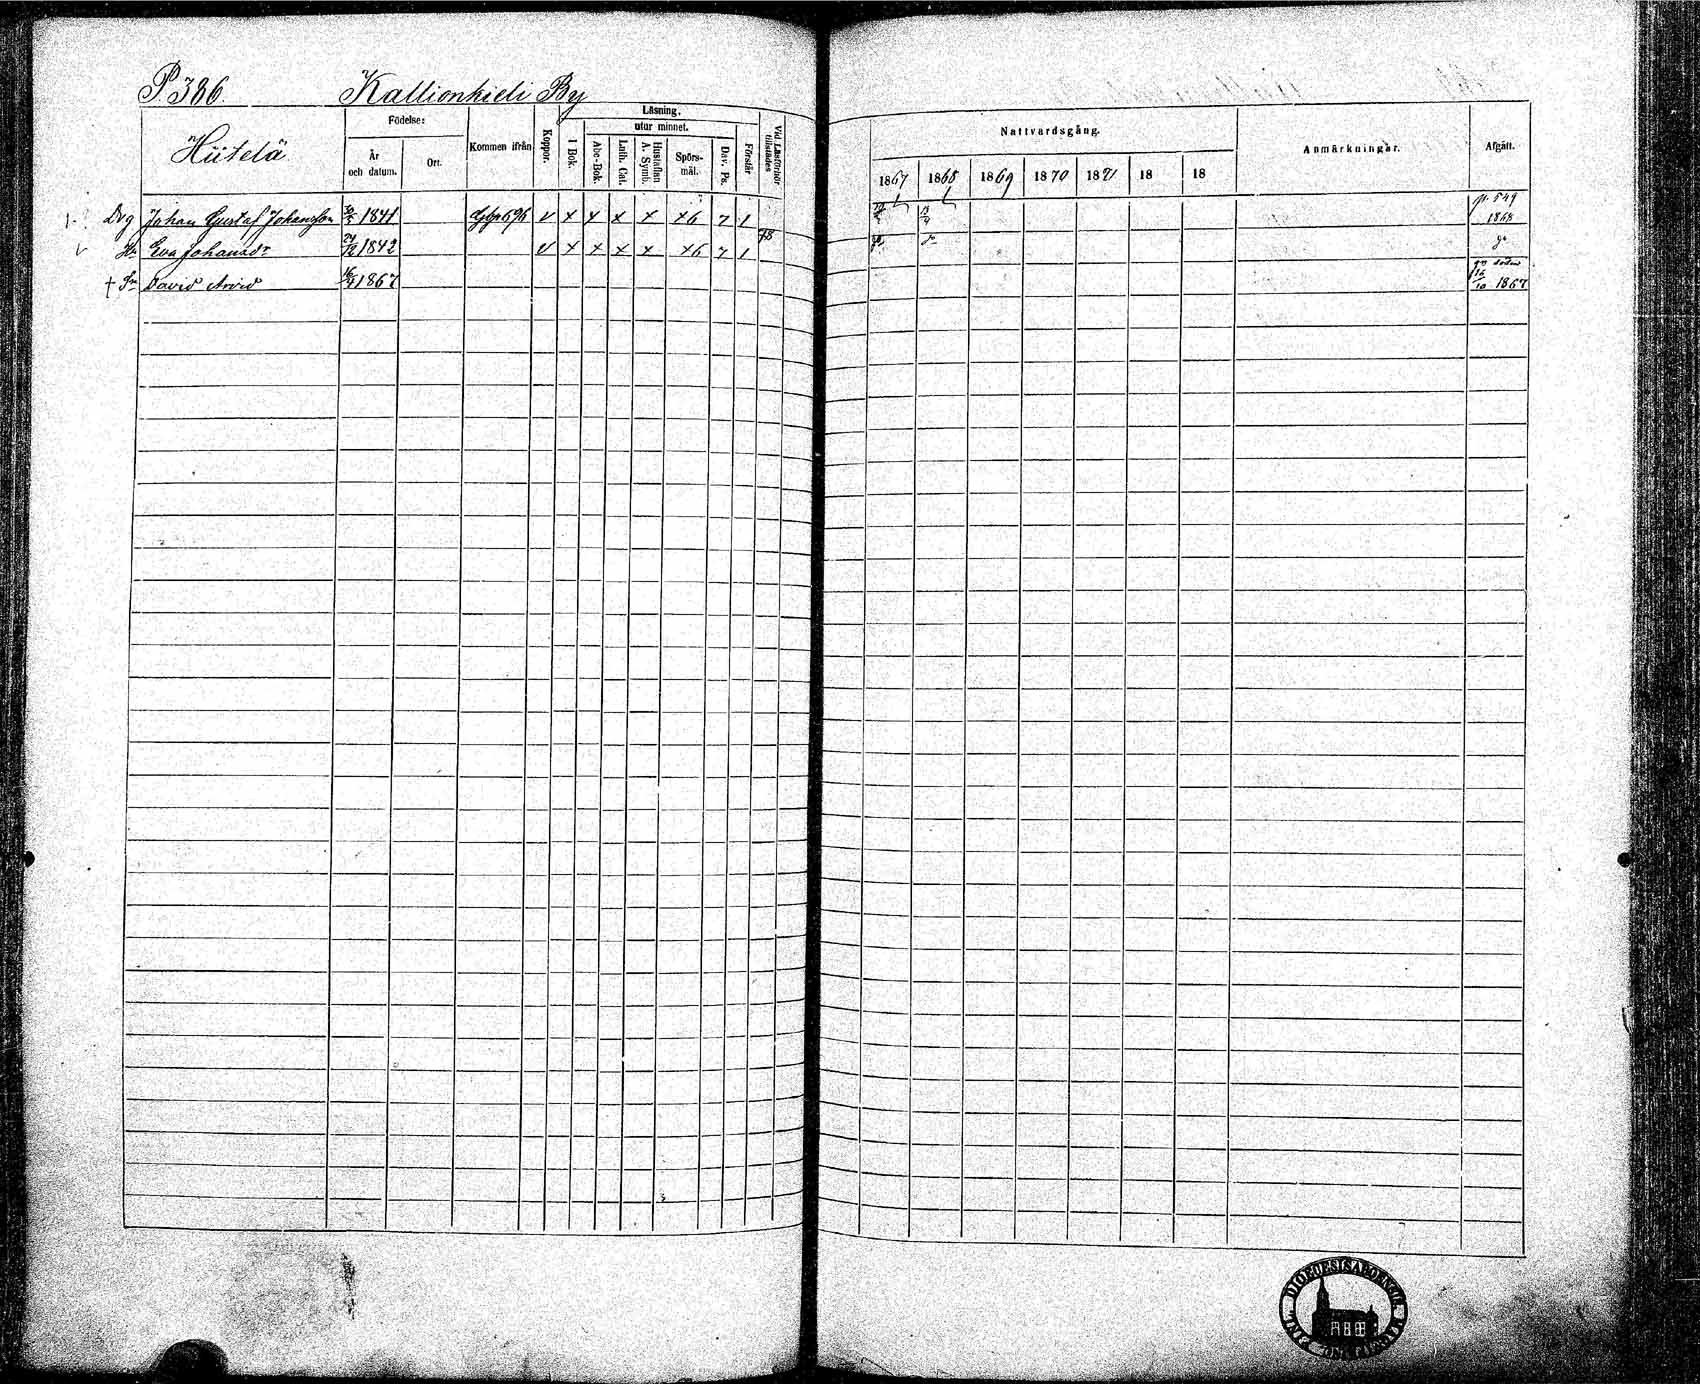 P. 386. Kallionkieli By
Hiitelä
Födelse:
År och datum.
Ort.
Kommen ifrån
Koppor.
Läsning,
I Bok.
utur minnet.
Abc-Bok.
Luth. Cat.
Hustaflan A. Symb.
Spörsmål.
Dav. Ps.
Förstår
Vid Läsförhör tillstädes
Nattvardsgång.
1867 1868 1869 1870 1871 18 18
Anmärkningar.
Afgått.
Drg Johan Gustaf Johansson 1841 696 v x x x x x6 7 1 p. 549 1868
Hu Eva Johansdr 24/12 1842 v x x x x x6 7 1 do
68
† Sn David Arvid 16/4 1867 död 16/10 1867